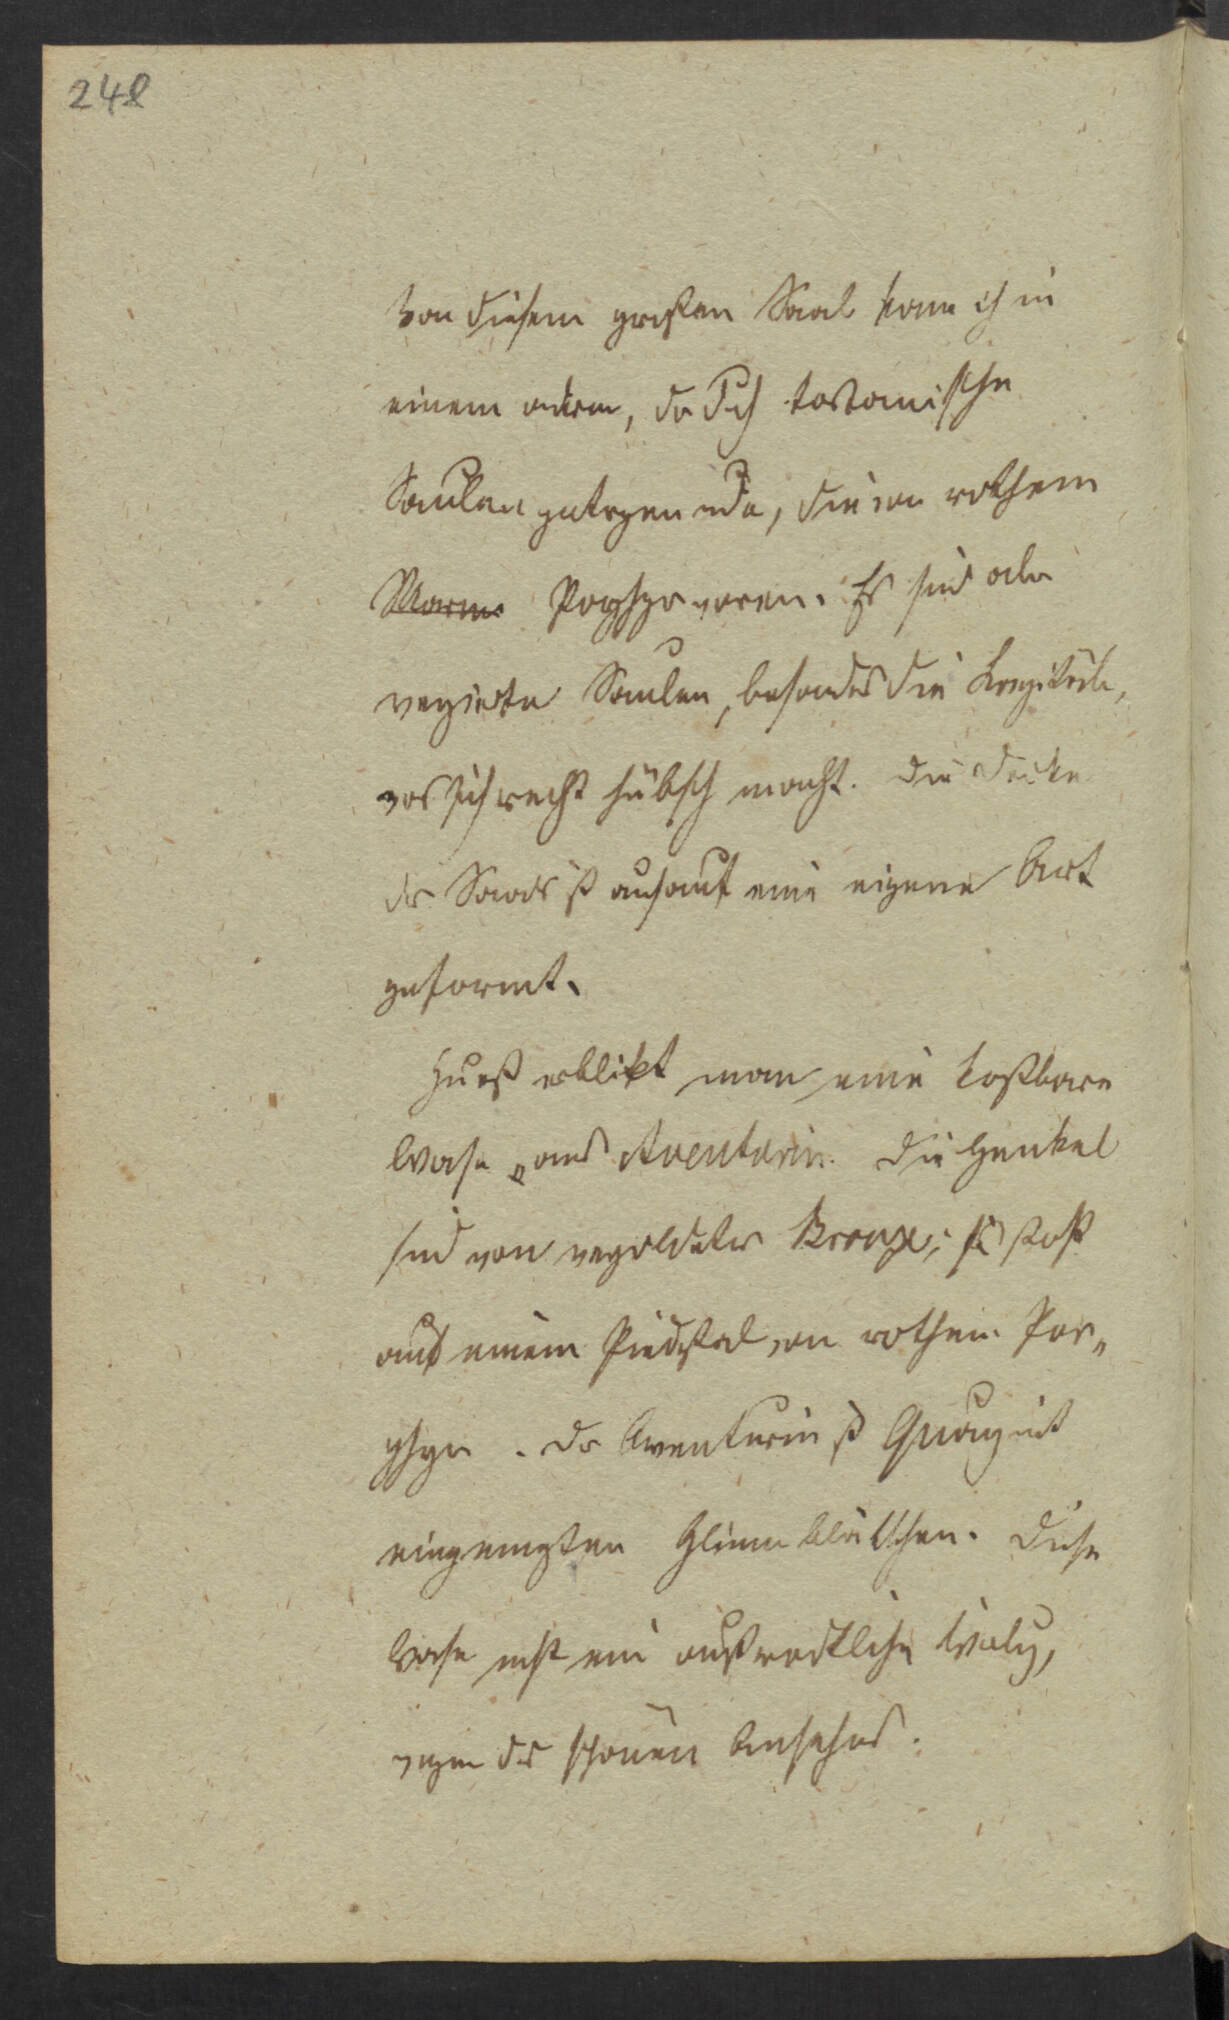 248
Von diesem großen Saal kam ich in
einem andern, der durch toskanische
Säulen getragen wird, die von rothem
Marm Porphyr waren. Es sind aber
verzierte Säulen, besonders die Kapitäle,
was sich recht hübsch macht. Die Decke
des Saals ist auch auf eine eigene Art
geformt.
Hier erblikt man eine kostbare
Vase aus Aventurin. Die Henkel
sind von vergoldeter Bronze; sie steht
auf einem Piedestal von rothem Por„
phyr. Der Aventurin ist Quarz mit
eingemengten Glimmerblättchen. Diese
Vase hat ein außerordentliche
wegen des schönen Ansehns.